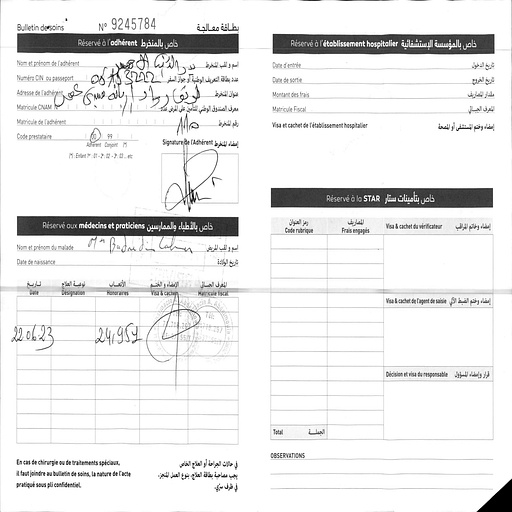 Bulletin de soins N° 9245784 بطاقة معالجة
Réservé à l'adhérent خاص بالمنخرط
Nom et prénom de l'adhérent اسم و لقب المنخرط
Numéro CIN ou passeport عدد بطاقة التعريف الوطنية أو جواز السفر
Adresse de l'adhérent عنوان المنخرط
Matricule CNAM معرف الصندوق الوطني للتأمين على المرض
Matricule de l'adhérent رقم المنخرط
Code prestataire 00 99
Adhérent Conjoint (*)
(*) Enfant N° : 01 - 2 : 02 - 3 : 03 .. etc
Signature de l'Adhérent إمضاء المنخرط
Réservé aux médecins et praticiens خاص بالأطباء والممارسين
Nom et prénom du malade اسم و لقب المريض
Date de naissance تاريخ الولادة
تاريخ نوعية العلاج الأتعاب الإمضاء و الختم المعرف الجبائي
Date Désignation Honoraires Visa & cachet Matricule fiscal
22 06 23 241,957
En cas de chirurgie ou de traitements spéciaux,
il faut joindre au bulletin de soins, la nature de l'acte
pratiqué sous pli confidentiel.
في حالات الجراحة أو العلاج الخاص
يجب مصاحبة بطاقة العلاج، بنوع العمل المنجز،
في ظرف سري.
Réservé à l'établissement hospitalier خاص بالمؤسسة الإستشفائية
Date d'entrée تاريخ الدخول
Date de sortie تاريخ الخروج
Montant des frais مقدار المصاريف
Matricule Fiscal المعرف الجبائي
Visa et cachet de l'établissement hospitalier إمضاء وختم المستشفى أو المصحة
Réservé à la STAR خاص بتأمينات ستار
رمز العنوان المصاريف
Code rubrique Frais engagés
Visa & cachet du vérificateur إمضاء وخاتم المراقب
Visa & cachet de l'agent de saisie إمضاء وختم الضبط الآلي
Décision et visa du responsable قرار وإمضاء المسؤول
Total الجملة
OBSERVATIONS